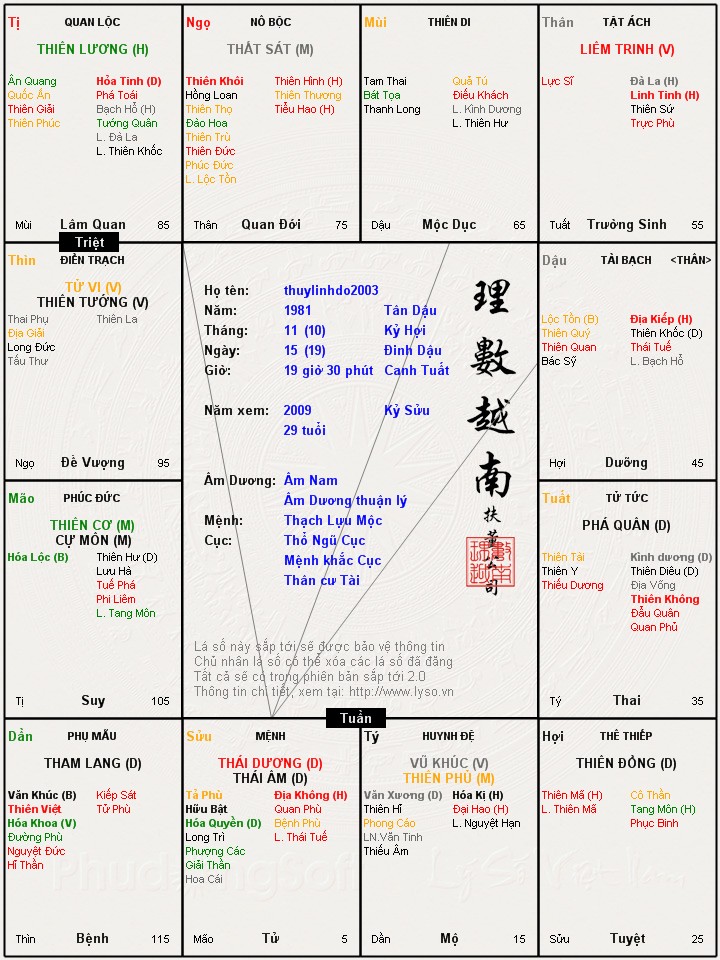 Tị QUAN LỘC
THIÊN LƯƠNG (H)
Ân Quang Hỏa Tinh (D)
Quốc Ấn Phá Toái
Thiên Giải Bạch Hổ (H)
Thiên Phúc Tướng Quân
L. Đà La
L. Thiên Khốc
Mùi Lâm Quan 85
Ngọ NÔ BỘC
THẤT SÁT (M)
Thiên Khôi Thiên Hình (H)
Hồng Loan Thiên Thương
Thiên Thọ Tiểu Hao (H)
Đào Hoa
Thiên Trù
Thiên Đức
Phúc Đức
L. Lộc Tồn
Thân Quan Đới 75
Mùi THIÊN DI
Tam Thai Quả Tú
Bát Tọa Điếu Khách
Thanh Long L. Kình Dương
L. Thiên Hư
Dậu Mộc Dục 65
Thân TẬT ÁCH
LIÊM TRINH (V)
Lực Sĩ Đà La (H)
Linh Tinh (H)
Thiên Sứ
Trực Phù
Tuất Trường Sinh 55
Triệt
Thìn ĐIỀN TRẠCH
TỬ VI (V)
THIÊN TƯỚNG (V)
Thai Phụ Thiên La
Địa Giải
Long Đức
Tấu Thư
Ngọ Đế Vượng 95
Họ tên: thuylinhdo2003
Năm: 1981 Tân Dậu
Tháng: 11 (10) Kỷ Hợi
Ngày: 15 (19) Đinh Dậu
Giờ: 19 giờ 30 phút Canh Tuất
Năm xem: 2009 Kỷ Sửu
29 tuổi
Âm Dương: Âm Nam
Âm Dương thuận lý
Mệnh: Thạch Lựu Mộc
Cục: Thổ Ngũ Cục
Mệnh khắc Cục
Thân cư Tài
理數越南
扶董公司
Lá số này sắp tới sẽ được bảo vệ thông tin
Chủ nhân lá số có thể xóa các lá số đã đăng
Tất cả sẽ có trong phiên bản sắp tới 2.0
Thông tin chi tiết, xem tại: http://www.lyso.vn
Dậu TÀI BẠCH <THÂN>
Lộc Tồn (B) Địa Kiếp (H)
Thiên Quý Thiên Khốc (D)
Thiên Quan Thái Tuế
Bác Sỹ L. Bạch Hổ
Hợi Dưỡng 45
Mão PHÚC ĐỨC
THIÊN CƠ (M)
CỰ MÔN (M)
Hóa Lộc (B) Thiên Hư (D)
Lưu Hà
Tuế Phá
Phi Liêm
L. Tang Môn
Tị Suy 105
Tuất TỬ TỨC
PHÁ QUÂN (D)
Thiên Tài Kình dương (D)
Thiên Y Thiên Diêu (D)
Thiếu Dương Địa Võng
Thiên Không
Đẩu Quân
Quan Phủ
Tý Thai 35
Tuần
Dần PHỤ MẪU
THAM LANG (D)
Văn Khúc (B) Kiếp Sát
Thiên Việt Tử Phù
Hóa Khoa (V)
Đường Phù
Nguyệt Đức
Hỉ Thần
Thìn Bệnh 115
Sửu MỆNH
THÁI DƯƠNG (D)
THÁI ÂM (D)
Tả Phù Địa Không (H)
Hữu Bật Quan Phù
Hóa Quyền (D) Bệnh Phù
Long Trì L. Thái Tuế
Phượng Các
Giải Thần
Hoa Cái
Mão Tử 5
Tý HUYNH ĐỆ
VŨ KHÚC (V)
THIÊN PHỦ (M)
Văn Xương (D) Hóa Kị (H)
Thiên Hỉ Đại Hao (H)
Phong Cáo L. Nguyệt Hạn
LN.Văn Tinh
Thiếu Âm
Dần Mộ 15
Hợi THÊ THIẾP
THIÊN ĐỒNG (D)
Thiên Mã (H) Cô Thần
L. Thiên Mã Tang Môn (H)
Phục Binh
Sửu Tuyệt 25